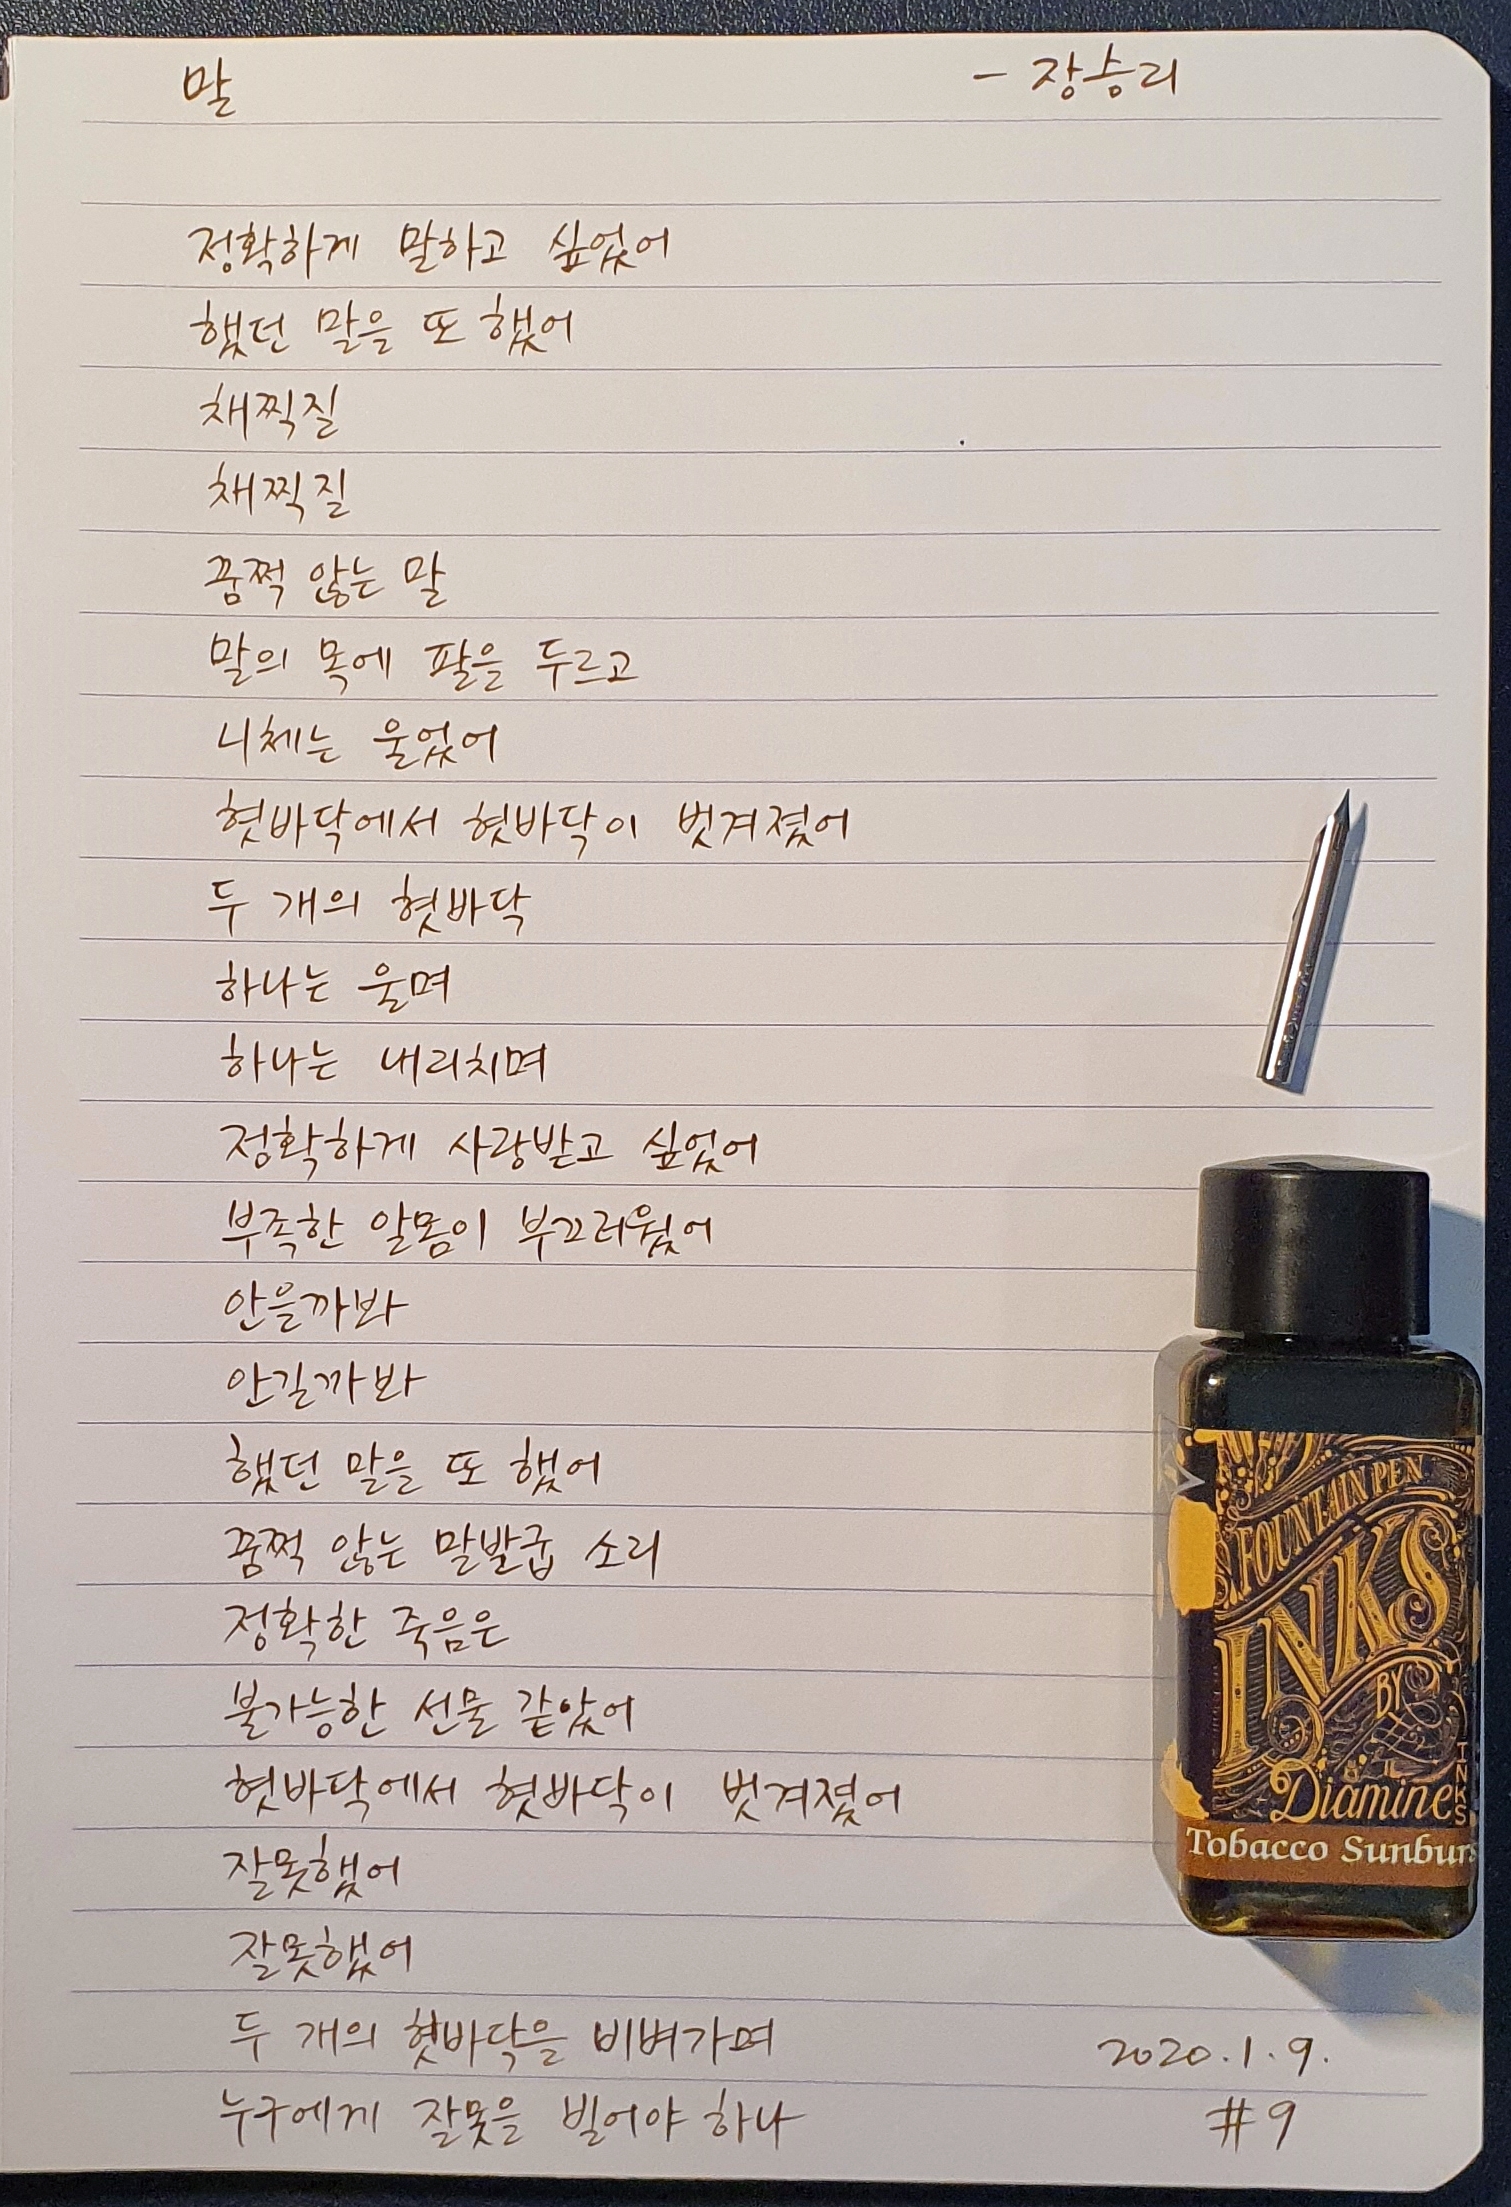 말 - 장승리
정확하게 말하고 싶었어
했던 말을 또 했어
채찍질
채찍질
꿈쩍 않는 말
말의 목에 팔을 두르고
니체는 울었어
혓바닥에서 혓바닥이 벗겨졌어
두 개의 혓바닥
하나는 울며
하나는 내리치며
정확하게 사랑받고 싶었어
부족한 알몸이 부끄러웠어
안을까봐
안길까봐
했던 말을 또 했어
꿈쩍 않는 말발굽 소리
정확한 죽음은
불가능한 선물 같았어
혓바닥에서 혓바닥이 벗겨졌어
잘못했어
잘못했어
두 개의 혓바닥을 비벼가며
누구에게 잘못을 빌어야 하나
2020.1.9.
#9
FOUNTAIN PEN
INKS
BY
Diamine
INKS
Tobacco Sunburs